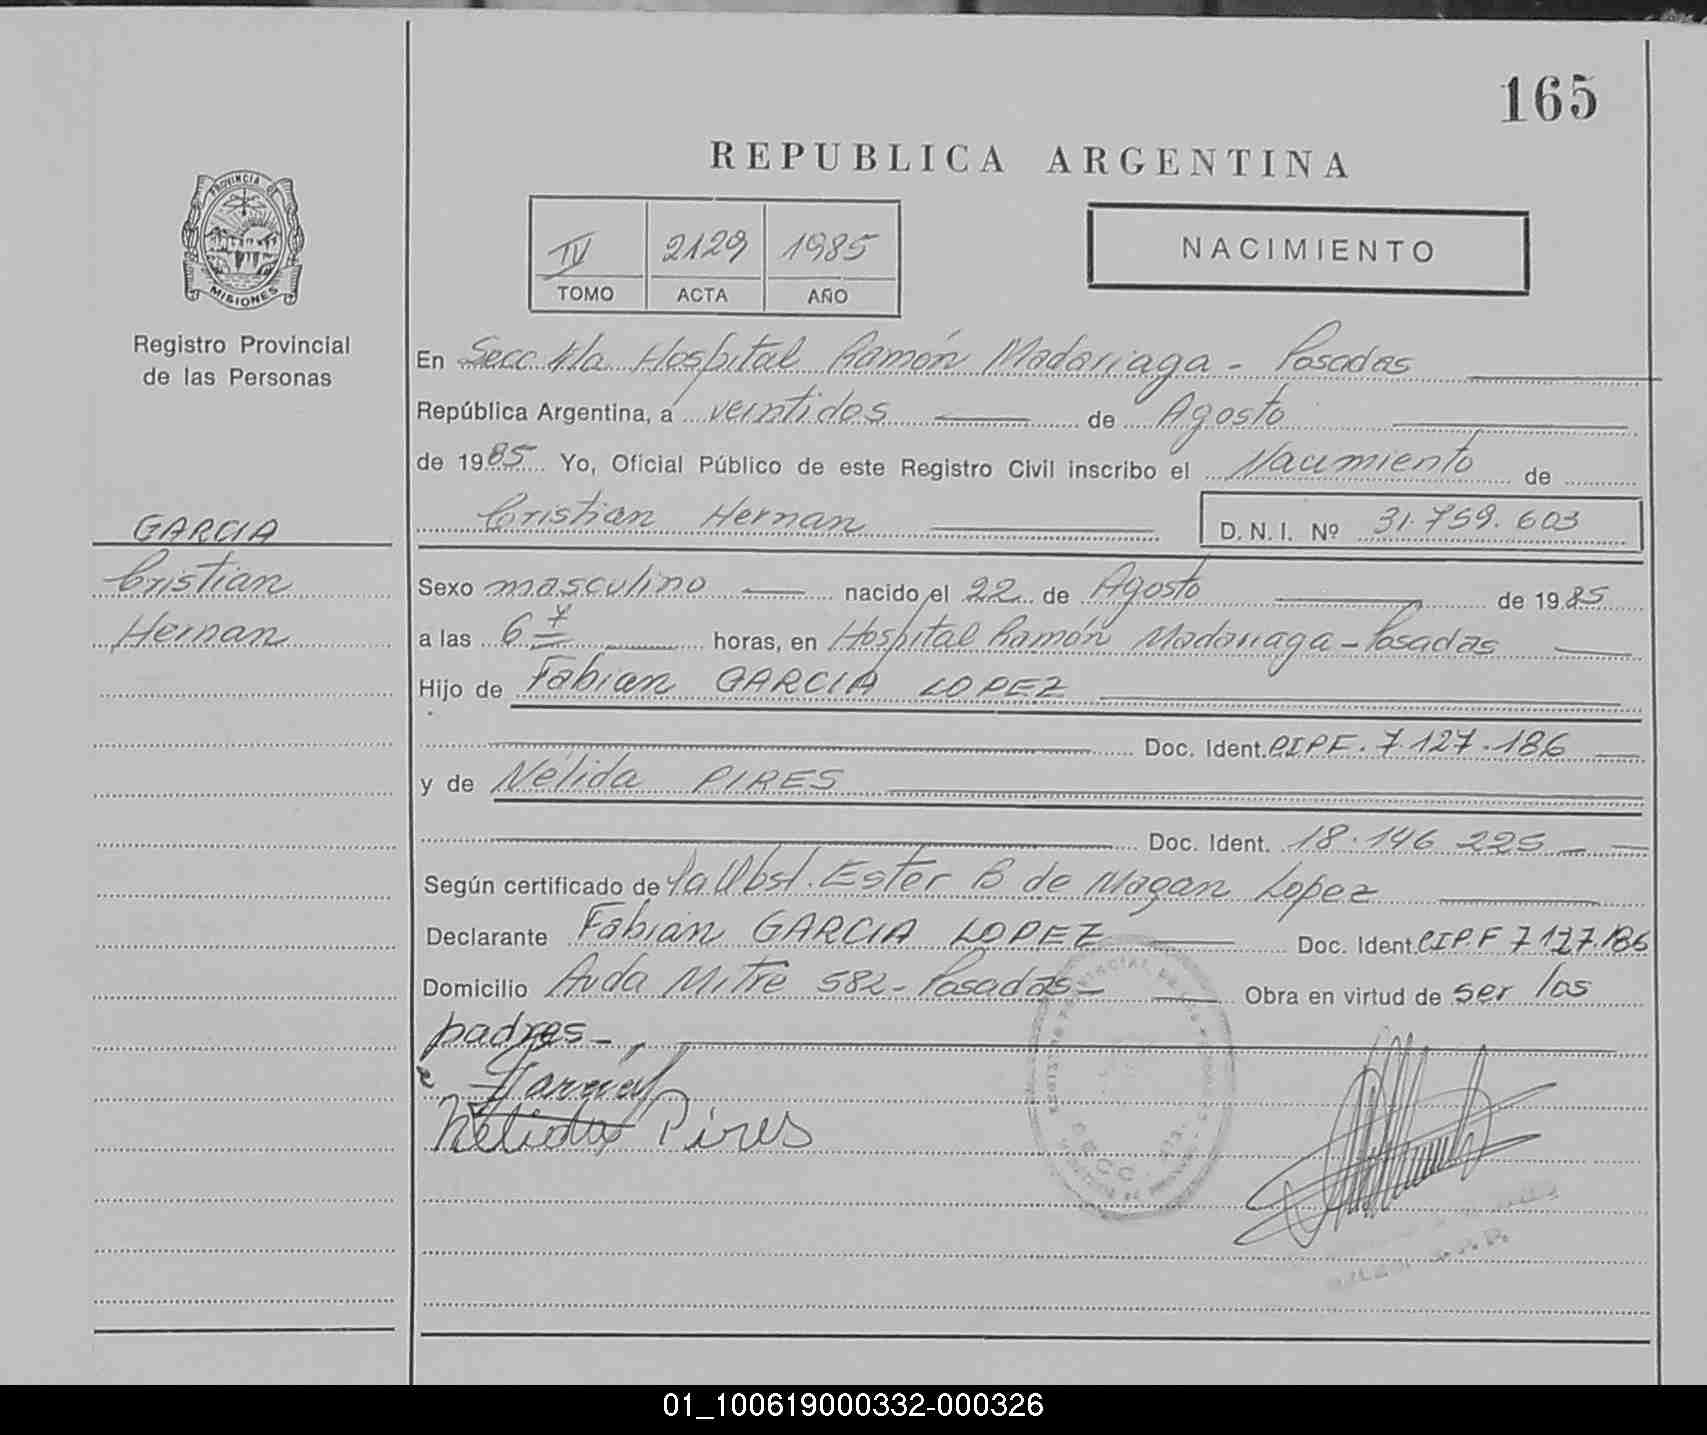 165
REPUBLICA ARGENTINA
PROVINCIA DE
MISIONES
Registro Provincial
de las Personas
IV 2129 1985
TOMO ACTA AÑO
NACIMIENTO
En Secc. 4ta Hospital Ramón Madariaga - Posadas
República Argentina, a veintidos de Agosto
de 1985 Yo, Oficial Público de este Registro Civil inscribo el Nacimiento de
Cristian Hernan D.N.I. Nº 31.759.603
GARCIA
Cristian
Hernan
Sexo masculino nacido el 22 de Agosto de 1985
a las 6 horas, en Hospital Ramón Madariaga - Posadas
Hijo de Fabian GARCIA LOPEZ
Doc. Ident. CIPF. 7.127.186
y de Nélida PIRES
Doc. Ident. 18.146 225
Según certificado de la Obst. Ester B de Magan Lopez
Declarante Fabian GARCIA LOPEZ Doc. Ident. CIPF 7127.186
Domicilio Avda Mitre 582 - Posadas - Obra en virtud de ser los
padres -
Garcia
Nelida Pires
01_100619000332-000326